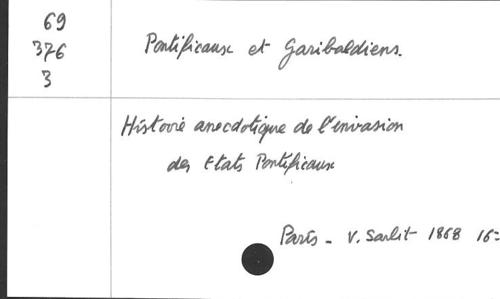 69
376
3
Pontificaux et Garibaldiens.
Histoire anecdotique de l'invasion
des Etats Pontificaux
Paris - V. Sarlit 1868 16=